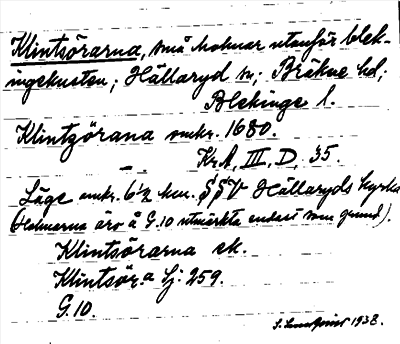 Klintsörarna, små holmar utanför blek-
ingekusten; Hällaryd sn; Bräkne hd;
Blekinge l.
Klintzörana omkr. 1680.
KrA, III, D. 35.
Läge omkr. 6½ km. SSV Hällaryds kyrka
(Holmarna äro å G.10 utmärkta endast som grund).
Klintsörarna ek.
Klintsör.a Sj. 259.
G.10.
1938.